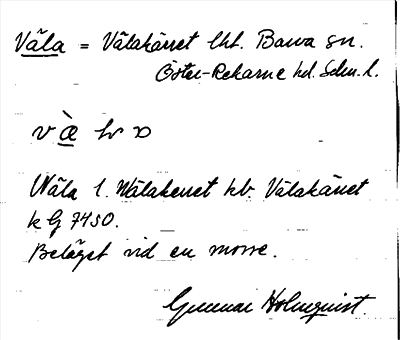 Våla = Vålakärret lht. Barva sn.
Öster-Rekarne hd. Sdm. l.
v æ̀ lv ɔ
Wåla l. Wålakerret kb. Vålakärret
k G 7450.
Beläget vid en mosse.
Gunnar Holmquist.